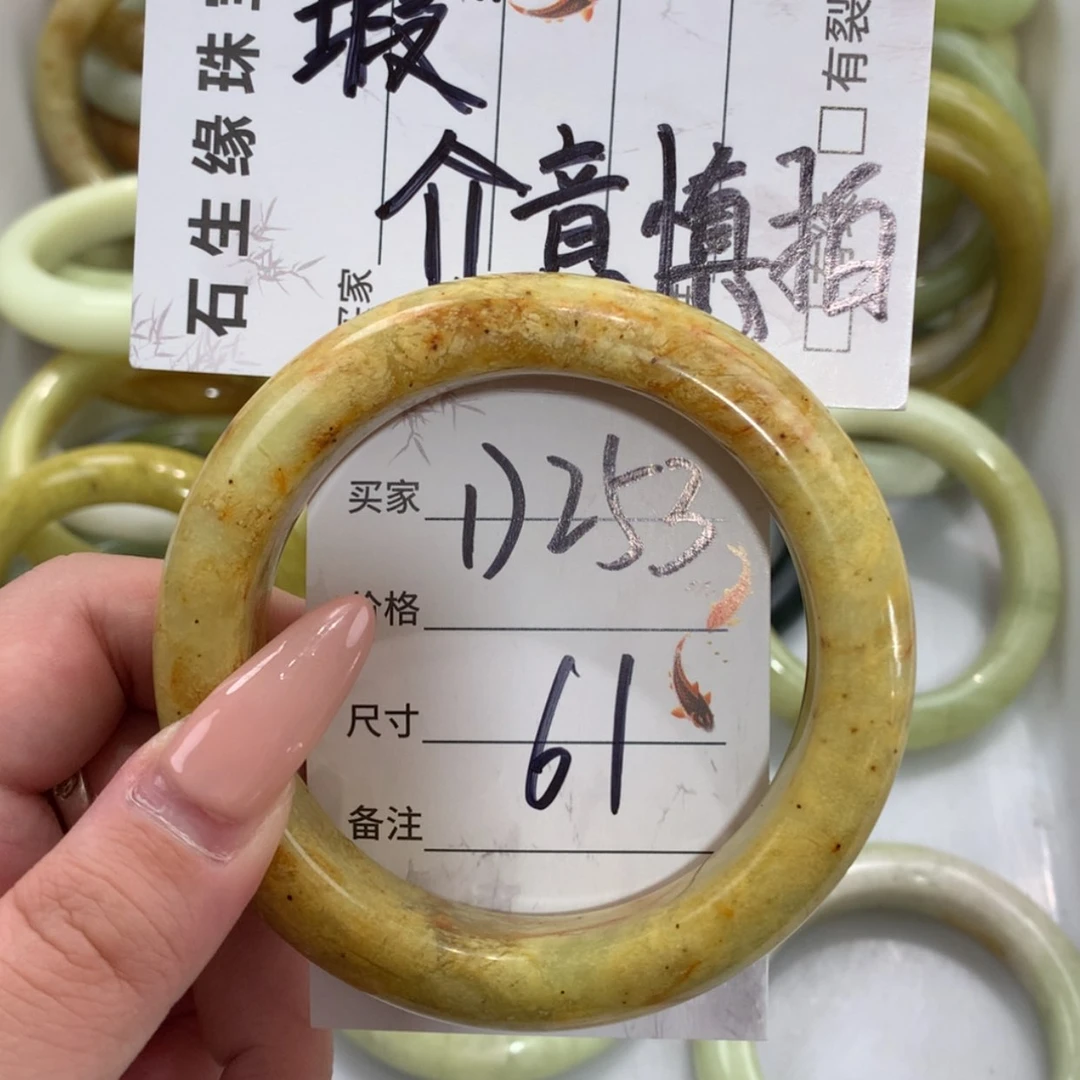 石生缘珠
瑕
介意慎拍
买家
有裂
买家 D253
价格
尺寸 61
备注